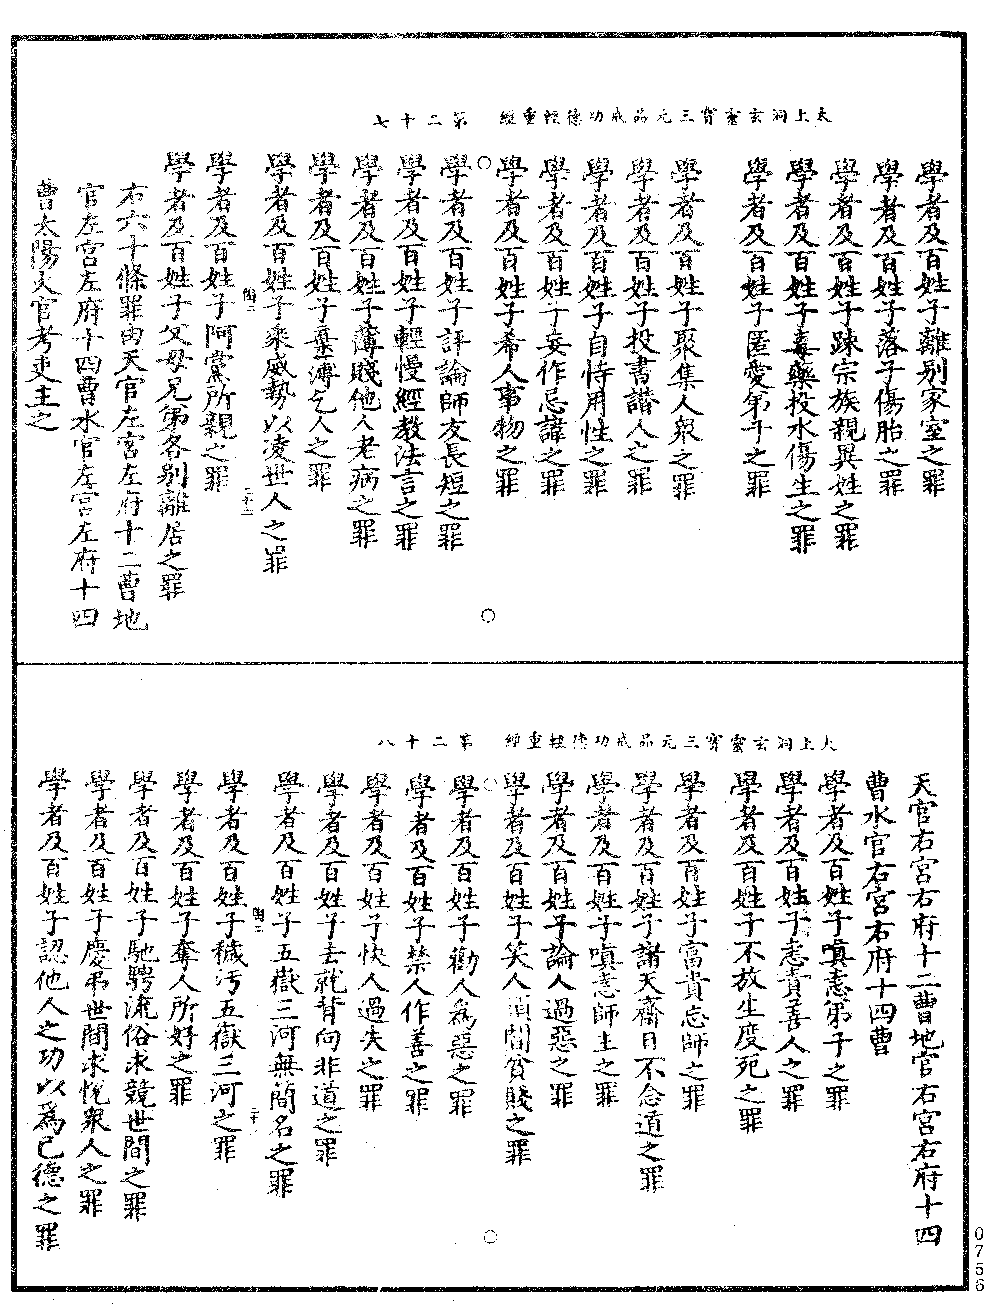 太上洞玄靈寶三元品戒功德輕重經 第二十七
學者及百姓子離別家室之罪
學者及百姓子落子傷胎之罪
學者及百姓子踈宗族親異姓之罪
學者及百姓子毒藥投水傷生之罪
學者及百姓子匿愛弟子之罪
學者及百姓子聚集人衆之罪
學者及百姓子投書譖人之罪
學者及百姓子自恃用性之罪
學者及百姓子妄作忌諱之罪
學者及百姓子希人事物之罪
學者及百姓子評論師友長短之罪
學者及百姓子輕慢經教法言之罪
學者及百姓子薄賤他人老病之罪
學者及百姓子棄薄乞人之罪
學者及百姓子乘威勢以凌世人之罪
學者及百姓子阿黨所親之罪
學者及百姓子父母兄弟各別離居之罪
右六十條罪由天官左宮左府十二曹地
官左宮左府十四曹水官左宮左府十四
曹太陽火官考吏主之
太上洞玄靈寶三元品戒功德輕重經 第二十八
天官右宮右府十二曹地官右宮右府十四
曹水官右宮右府十四曹
學者及百姓子嗔恚弟子之罪
學者及百姓子恚責善人之罪
學者及百姓子不放生度死之罪
學者及百姓子富貴忘師之罪
學者及百姓子謝天齋日不念道之罪
學者及百姓子嗔恚師主之罪
學者及百姓子論人過惡之罪
學者及百姓子笑人頑闇貧賤之罪
學者及百姓子勸人為惡之罪
學者及百姓子禁人作善之罪
學者及百姓子快人過失之罪
學者及百姓子去就背向非道之罪
學者及百姓子五嶽三河無簡名之罪
學者及百姓子穢污五嶽三河之罪
學者及百姓子奪人所好之罪
學者及百姓子馳騁流俗求競世間之罪
學者及百姓子慶弔世間求悅衆人之罪
學者及百姓子認他人之功以為己德之罪
0756